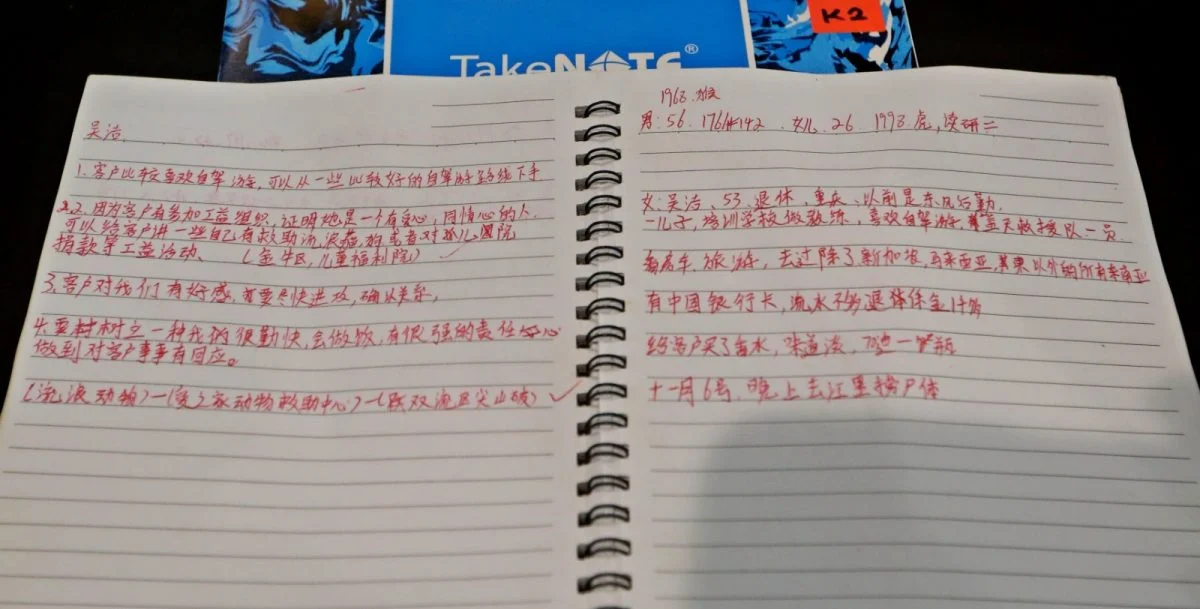 TakeNOTE®
K2
吴洁
1.客户比较喜欢自驾游,可以从一些比较好的自驾游路线下手
2.因为客户有参加工益组织,证明她是一个有爱心,同情心的人.
可以给客户讲一些自己有救助流浪猫,狗或者对孤儿园院
捐款等工益活动、(金牛区,儿童福利院)
3.客户对我们有好感,就要尽快进攻,确认关系,
4.要树树立一种我们很勤快,会做饭,有很强的责任心
做到对客户事事有回应。
(流浪动物)—(爱之家动物救助中心)—(区双流区尖山坡)
1968.猴
男:56.176 142.女儿.26.1998虎,读研二
女:吴洁、53.退休、重庆、以前是东风后勤.
一儿子,培训学校做教练,喜欢自驾游,蓝天救援队一员.
有房车.旅游,去过除了新加坡,马来西亚,以外的所有东南亚
有中国银行卡,流水不多退休金1千多
给客户买了香水,味道淡,
十一月6号.晚上去江里